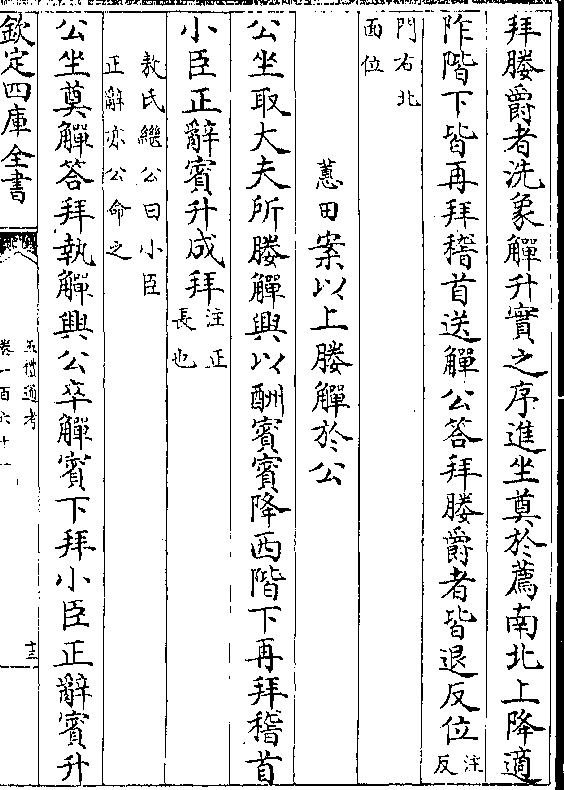 拜媵爵者洗象觶升實之序進坐奠於薦南北上降適
阼階下皆再拜稽首送觶公答拜媵爵者皆退反位注反
門右北面位
蕙田案以上媵觶於公
公坐取大夫所媵觶興以酬賓賓降西階下再拜稽首
小臣正辭賓升成拜注正長也
敖氏繼公曰小臣正辭亦公命之
公坐奠觶答拜執觶興公卒觶賓下拜小臣正辭賓升
欽定四庫全書
五禮通考
卷一百六十一
十三